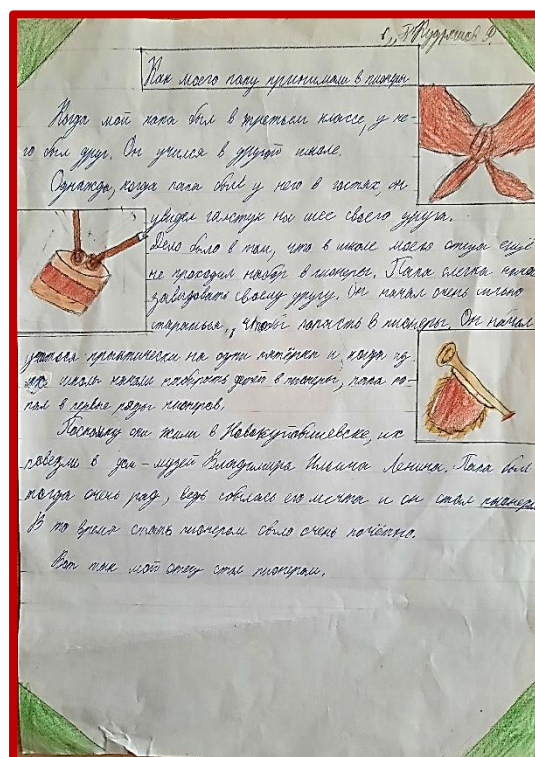 Кудряшов Ф.
Как моего папу принимали в пионеры
Когда мой папа был в третьем классе, у не-
го был друг. Он учился в другой школе.
Однажды, когда папа был у него в гостях, он
увидел галстук на шее своего друга.
Дело было в том, что в школе моего отца ещё
не проходил набор в пионеры. Папа слегка начал
завидовать своему другу. Он начал очень сильно
стараться, чтобы попасть в пионеры. Он начал
учиться практически на одни пятёрки и, когда из
их школы начали набирать ребят в пионеры, папа по-
пал в первые ряды пионеров.
Поскольку они жили в Новокуйбышевске, их
повезли в дом-музей Владимира Ильича Ленина. Папа был
тогда очень рад, ведь сбылась его мечта и он стал пионером.
В то время стать пионером было очень почётно.
Вот так мой отец стал пионером.